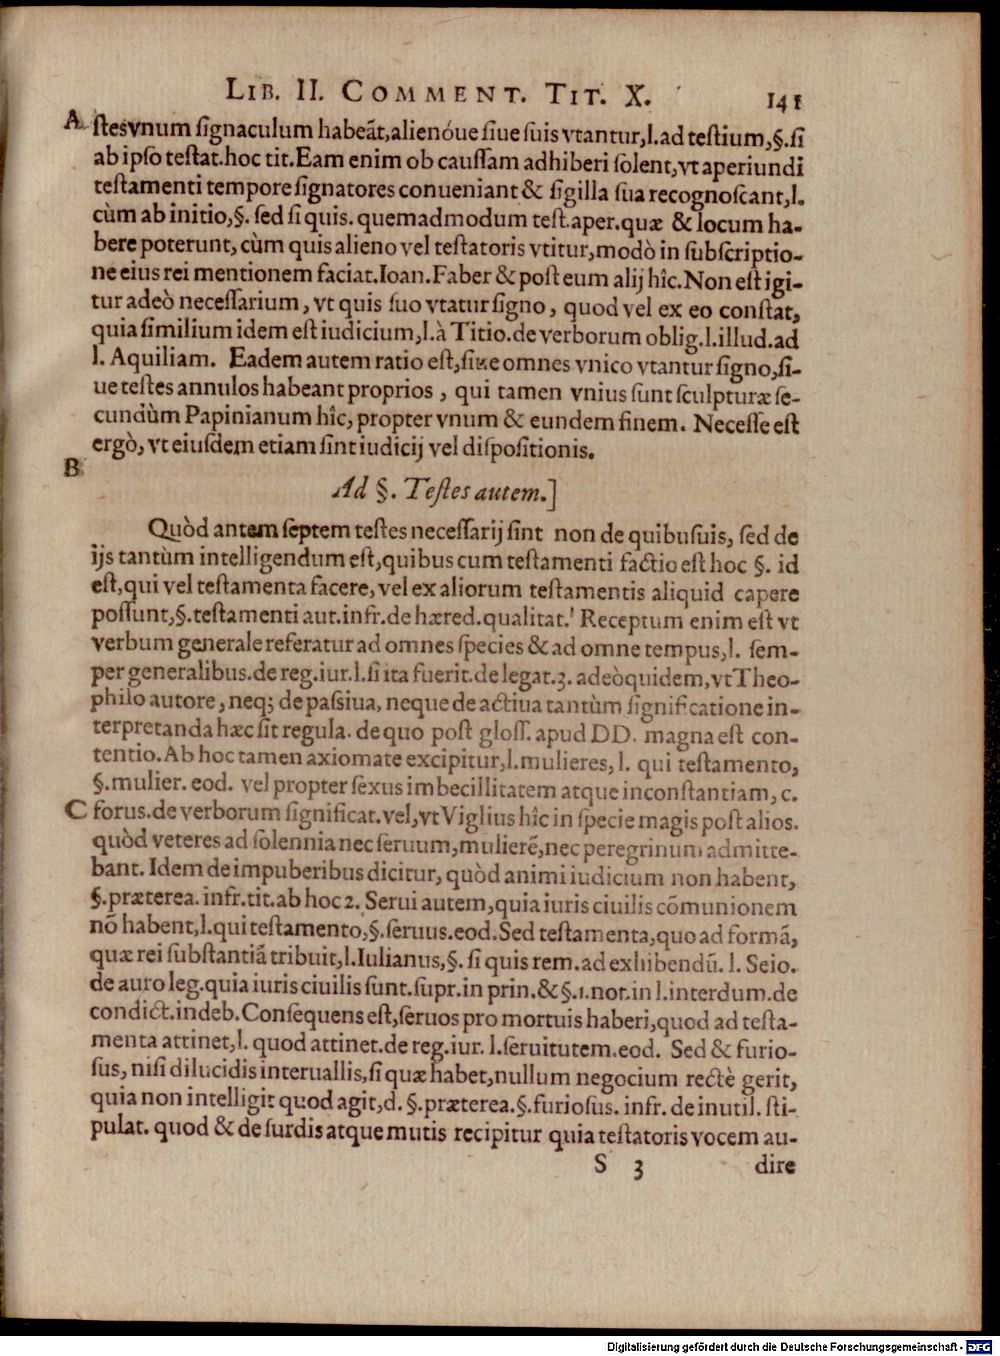 LIB. II. COMMENT. TIT. X. 141
A stesvnum signaculum habeãt, alienóue siue suis vtantur, l. ad testium, §. si
ab ipso testat. hoc tit. Eam enim ob caussam adhiberi solent, vt aperiundi
testamenti tempore signatores conueniant & sigilla sua recognoscant, l.
cùm ab initio, §. sed si quis. quemadmodum test. aper. quæ & locum ha-
bere poterunt, cùm quis alieno vel testatoris vtitur, modò in subscriptio-
ne eius rei mentionem faciat. Ioan. Faber & post eum alij hîc. Non est igi-
tur adeò necessarium, vt quis suo vtatur signo, quod vel ex eo constat,
quia similium idem est iudicium, l. à Titio. de verborum oblig. l. illud. ad
l. Aquiliam. Eadem autem ratio est, siue omnes vnico vtantur signo, si-
ue testes annulos habeant proprios, qui tamen vnius sunt sculpturæ se-
cundùm Papinianum hîc, propter vnum & eundem finem. Necesse est
ergò, vt eiusdem etiam sint iudicij vel dispositionis.
B
Ad §. Testes autem.]
Quòd antem septem testes necessarij sint non de quibusuis, sed de
ijs tantùm intelligendum est, quibus cum testamenti factio est hoc §. id
est, qui vel testamenta facere, vel ex aliorum testamentis aliquid capere
possunt, §. testamenti aut. infr. de hæred. qualitat. Receptum enim est vt
verbum generale referatur ad omnes species & ad omne tempus, l. sem-
per generalibus. de reg. iur. l. si ita fuerit. de legat. 3. adeòquidem, vt Theo-
philo autore, neq; de passiua, neque de actiua tantùm significatione in-
terpretanda hæc sit regula. de quo post gloss. apud DD. magna est con-
tentio. Ab hoc tamen axiomate excipitur, l. mulieres, l. qui testamento,
§. mulier. eod. vel propter sexus imbecillitatem atque inconstantiam, c.
C forus. de verborum significat. vel, vt Viglius hîc in specie magis post alios.
quòd veteres ad solennia nec seruum, mulierẽ, nec peregrinum admitte-
bant. Idem de impuberibus dicitur, quòd animi iudicium non habent,
§. præterea. infr. tit. ab hoc 2. Serui autem, quia iuris ciuilis cõmunionem
nõ habent, l. qui testamento, §. seruus. eod. Sed testamenta, quo ad formã,
quæ rei substantiã tribuit, l. Iulianus, §. si quis rem. ad exhibendũ. l. Seio.
de auro leg. quia iuris ciuilis sunt. supr. in prin. & §. 1. not. in l. interdum. de
condict. indeb. Consequens est, seruos pro mortuis haberi, quod ad testa-
menta attinet, l. quod attinet. de reg. iur. l. seruitutem. eod. Sed & furio-
sus, nisi dilucidis interuallis, si quæ habet, nullum negocium rectè gerit,
quia non intelligit quod agit, d. §. præterea. §. furiosus. infr. de inutil. sti-
pulat. quod & de surdis atque mutis recipitur quia testatoris vocem au-
S 3 dire
Digitalisierung gefördert durch die Deutsche Forschungsgemeinschaft - DFG